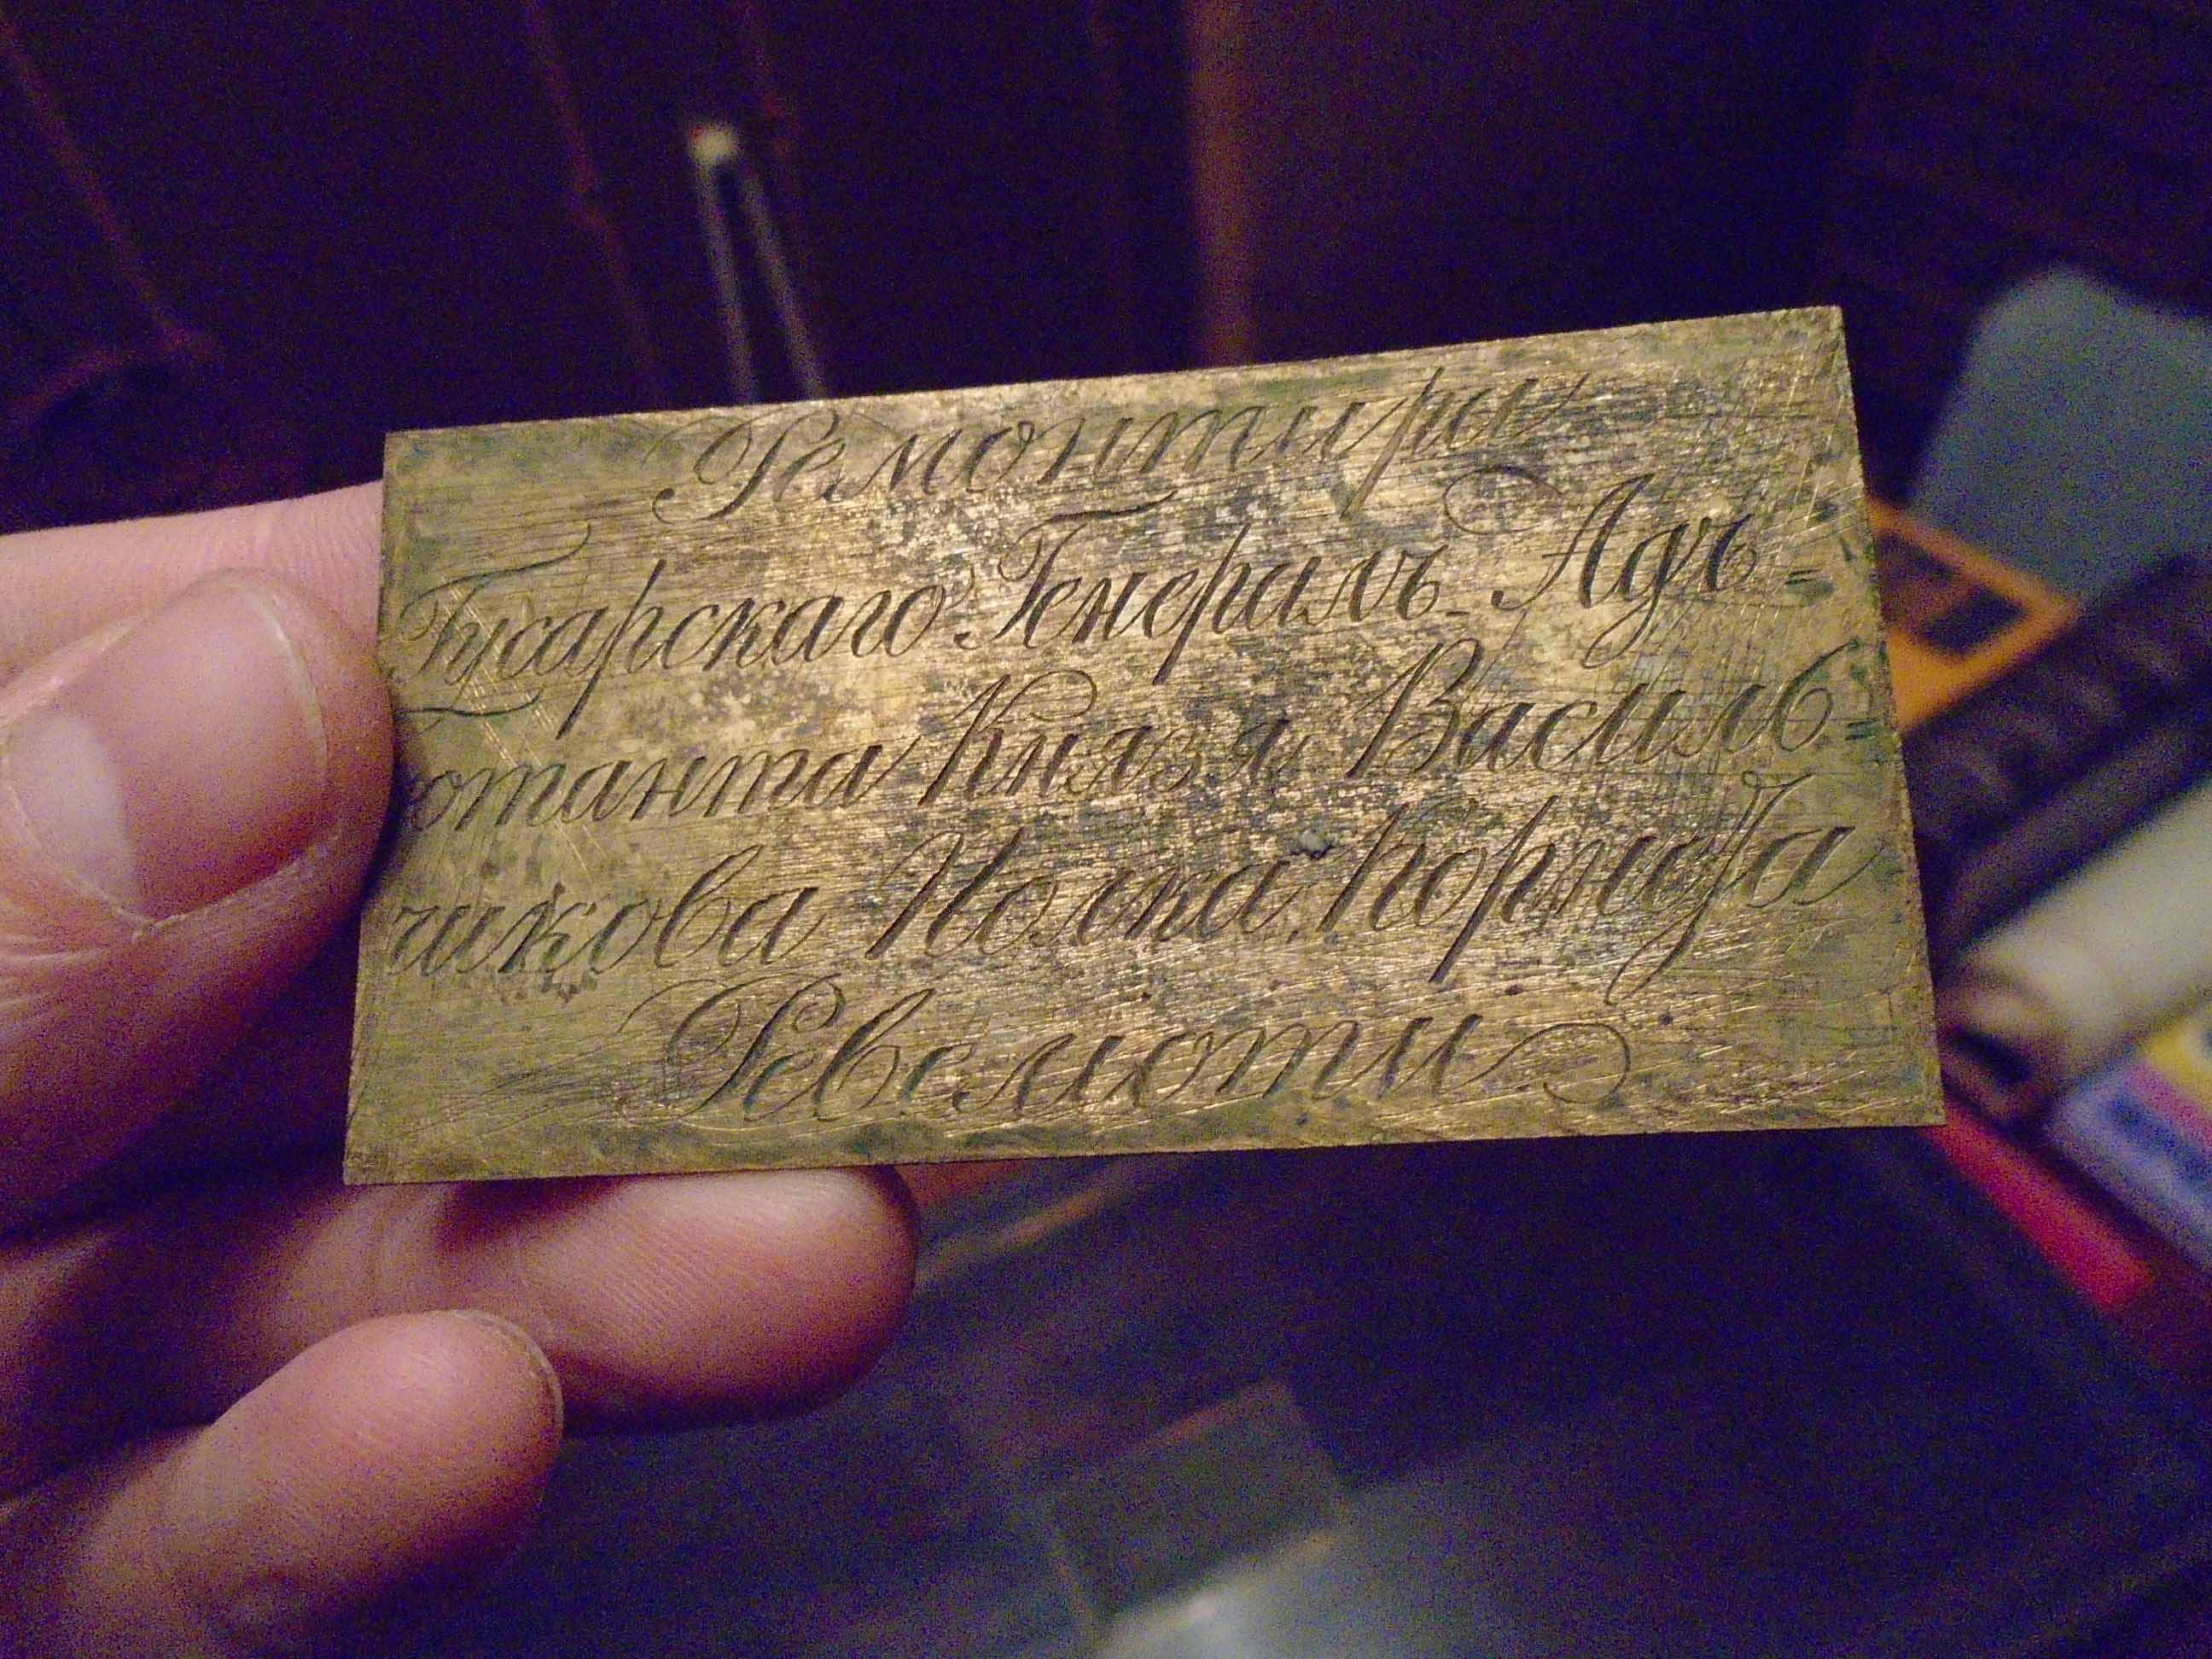 Ремонтира
Гусарскаго Генералъ-Адъ=
ютанта Князя Василь=
чикова Полка Корнета
Ревелиоти